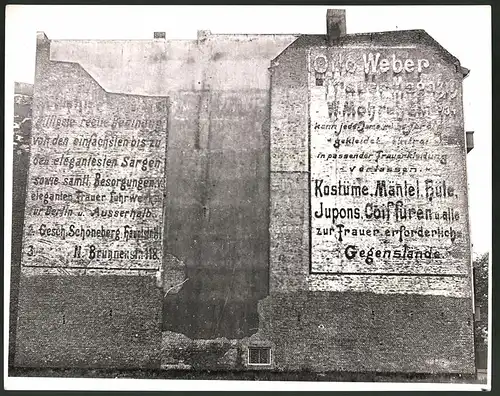 reelle Bedienung
von den einfachsten bis zu
den elegantesten Särgen
sowie sämtl. Besorgungen, v.
eleganten Trauer Fuhrwerk.
für Berlin u. Ausserhalb.
2. Gesch. Schöneberg, Hauptstr.
3. N. Brunnenstr. 118.
Otto Weber
Trauer Magazin
W. Mohrenstr.
kann jede Dame
gekleidet
in passender Trauerkleidung
verlassen.
Kostüme, Mäntel, Hüte,
Jupons, Coiffuren u. alle
zur Trauer erforderlich.
Gegenstände.